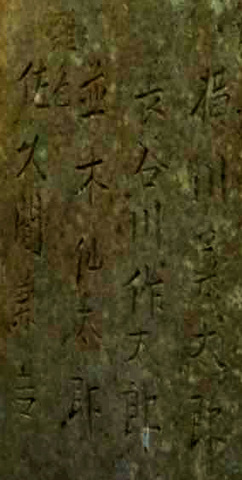 川太郎
長谷川作太郎
並木仙太郎
佐久間兼吉